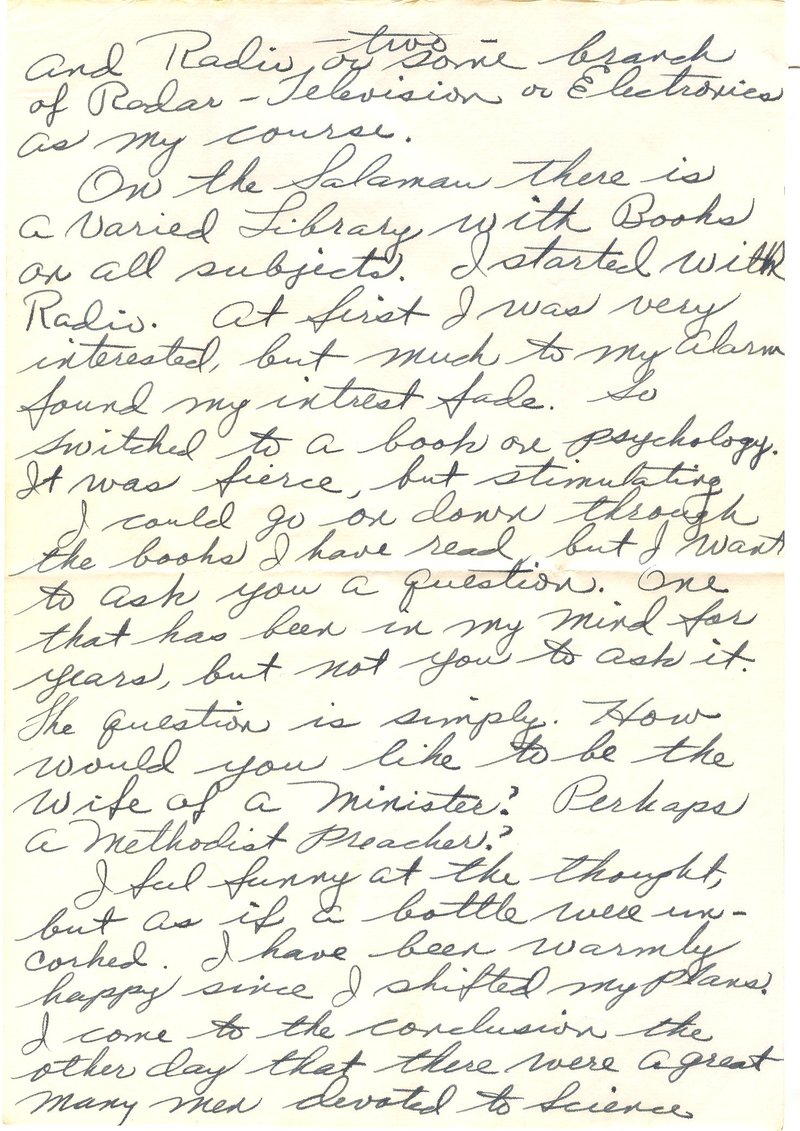 and Radio, two or some branch
of Radar - Television or Electronics
as my course.
On the Salamau there is
a Varied Library with Books
on all subjects. I started with
Radio. At first I was very
interested, but much to my alarm
found my intrest fade. So
switched to a book on psychology.
It was fierce, but stimulating
I could go on down through
the books I have read, but I want
to ask you a question. One
that has been in my mind for
years, but not you to ask it.
The question is simply. How
would you like to be the
wife of a Minister? Perhaps
a Methodist Preacher?
I feel funny at the thought,
but as if a bottle were un-
corked. I have been warmly
happy since I shifted my plans.
I come to the conclusion the
other day that there were a great
many men devoted to Science